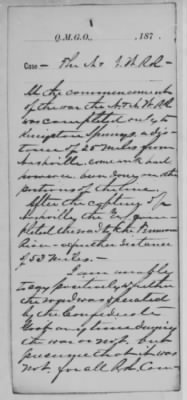 Q.M.G.O., 187
Case — The N. & N.W. R.R. —
At the commencement
of the war the N. & N.W. RR
was completed only to
Kingston Springs, a dis-
tance of 25 miles from
Nashville, some work had
however been done on other
portions of the line.
After the capture of
Nashville the
the road to the Tennessee
River — a further distance
of 53 miles. —
I am unable
to say positively whether
the road was operated
by the Confederate
Govt or any time during
the war or not, but
presume that it was
not, for all R.R. Com-